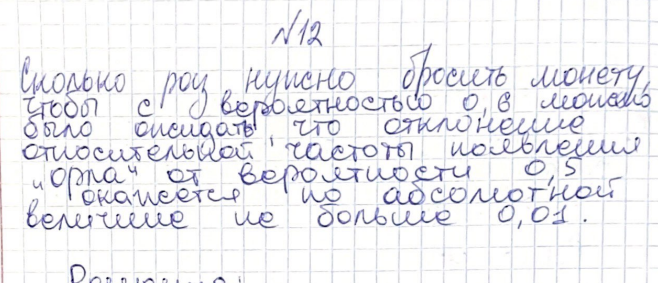 №12
Сколько раз нужно бросить монету,
чтобы с вероятностью 0,6 можно
было ожидать, что отклонение
относительной частоты появления
"орла" от вероятности 0,5
окажется по абсолютной
величине не больше 0,01.
Решение: